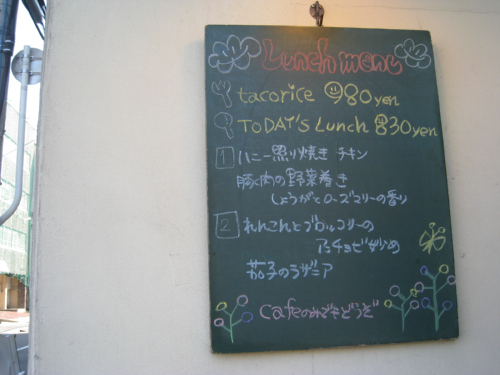 Lunch menu
tacorice 980yen
TODAY'S Lunch 830yen
1 ハニー照り焼きチキン
豚肉の野菜巻き
しょうがとローズマリーの香り
2 れんこんとブロッコリーの
アンチョビ炒め
茄子のラザニア
cafeのみでもどうぞ